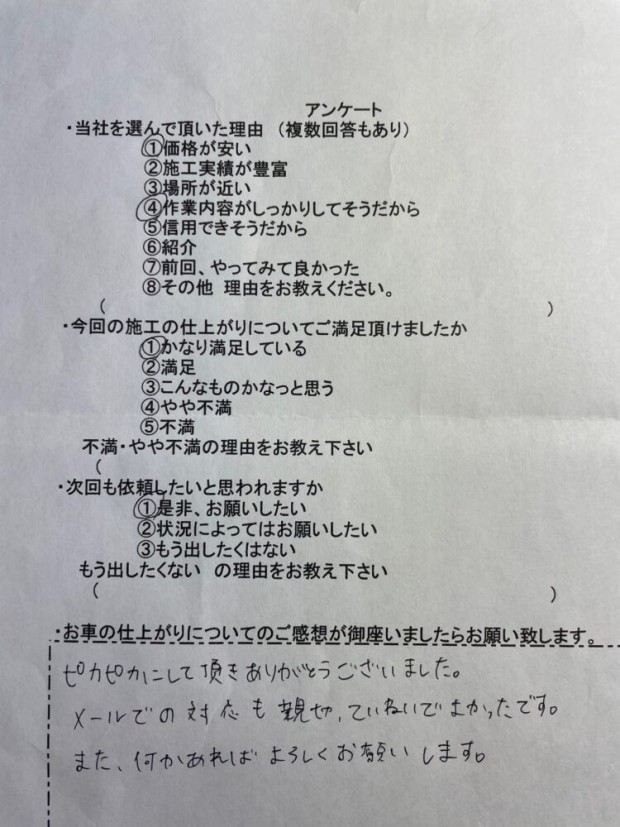 アンケート
・当社を選んで頂いた理由 (複数回答もあり)
①価格が安い
②施工実績が豊富
③場所が近い
④作業内容がしっかりしてそうだから
⑤信用できそうだから
⑥紹介
⑦前回、やってみて良かった
⑧その他 理由をお教えください。
( )
・今回の施工の仕上がりについてご満足頂けましたか
①かなり満足している
②満足
③こんなものかなっと思う
④やや不満
⑤不満
不満・やや不満の理由をお教え下さい
(
・次回も依頼したいと思われますか
①是非、お願いしたい
②状況によってはお願いしたい
③もう出したくはない
もう出したくない の理由をお教え下さい
( )
・お車の仕上がりについてのご感想が御座いましたらお願い致します。
ピカピカにして頂きありがとうございました。
メールでの対応も親切、ていねいでよかったです。
また、何かあればよろしくお願いします。